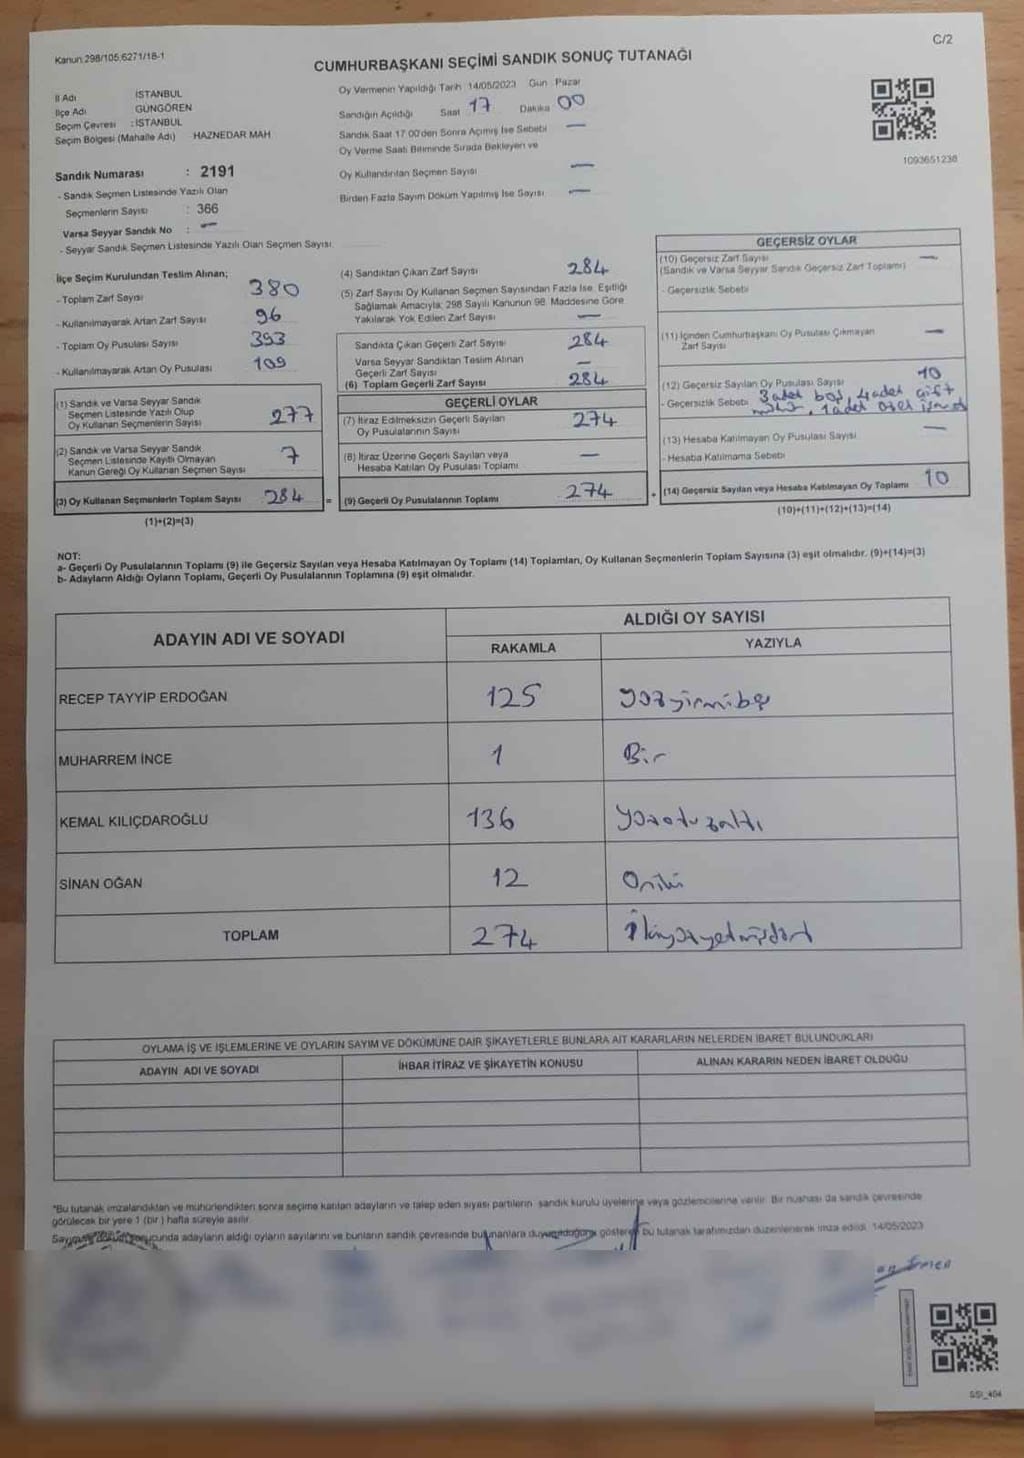 C/2
Kanun:298/105;6271/18-1
CUMHURBAŞKANI SEÇİMİ SANDIK SONUÇ TUTANAĞI
İl Adı İSTANBUL
İlçe Adı GÜNGÖREN
Seçim Çevresi : İSTANBUL
Seçim Bölgesi (Mahalle Adı) HAZNEDAR MAH
Sandık Numarası : 2191
- Sandık Seçmen Listesinde Yazılı Olan
Seçmenlerin Sayısı : 366
Varsa Seyyar Sandık No : —
- Seyyar Sandık Seçmen Listesinde Yazılı Olan Seçmen Sayısı
Oy Vermenin Yapıldığı Tarih 14/05/2023 Gün : Pazar
Sandığın Açıldığı Saat 17 Dakika 00
Sandık Saat 17:00'den Sonra Açılmış İse Sebebi —
Oy Verme Saati Bitiminde Sırada Bekleyen ve
Oy Kullandırılan Seçmen Sayısı —
Birden Fazla Sayım Döküm Yapılmış İse Sayısı —
1093651238
İlçe Seçim Kurulundan Teslim Alınan;
- Toplam Zarf Sayısı 380
- Kullanılmayarak Artan Zarf Sayısı 96
- Toplam Oy Pusulası Sayısı 393
- Kullanılmayarak Artan Oy Pusulası 109
(1) Sandık ve Varsa Seyyar Sandık
Seçmen Listesinde Yazılı Olup
Oy Kullanan Seçmenlerin Sayısı 277
(2) Sandık ve Varsa Seyyar Sandık
Seçmen Listesinde Kayıtlı Olmayan
Kanun Gereği Oy Kullanan Seçmen Sayısı 7
(3) Oy Kullanan Seçmenlerin Toplam Sayısı 284 =
(1)+(2)=(3)
(4) Sandıktan Çıkan Zarf Sayısı 284
(5) Zarf Sayısı Oy Kullanan Seçmen Sayısından Fazla İse, Eşitliği
Sağlamak Amacıyla; 298 Sayılı Kanunun 98. Maddesine Göre
Yakılarak Yok Edilen Zarf Sayısı —
Sandıkta Çıkan Geçerli Zarf Sayısı 284
Varsa Seyyar Sandıktan Teslim Alınan
Geçerli Zarf Sayısı —
(6) Toplam Geçerli Zarf Sayısı 284
GEÇERLİ OYLAR
(7) İtiraz Edilmeksizin Geçerli Sayılan
Oy Pusulalarının Sayısı 274
(8) İtiraz Üzerine Geçerli Sayılan veya
Hesaba Katılan Oy Pusulası Toplamı —
(9) Geçerli Oy Pusulalarının Toplamı 274 +
GEÇERSİZ OYLAR
(10) Geçersiz Zarf Sayısı —
(Sandık ve Varsa Seyyar Sandık Geçersiz Zarf Toplamı)
- Geçersizlik Sebebi
(11) İçinden Cumhurbaşkanı Oy Pusulası Çıkmayan
Zarf Sayısı —
(12) Geçersiz Sayılan Oy Pusulası Sayısı 10
- Geçersizlik Sebebi 3 adet boş, adet çift
mühür, 1 adet özel işaret
(13) Hesaba Katılmayan Oy Pusulası Sayısı —
- Hesaba Katılmama Sebebi
(14) Geçersiz Sayılan veya Hesaba Katılmayan Oy Toplamı 10
(10)+(11)+(12)+(13)=(14)
NOT:
a- Geçerli Oy Pusulalarının Toplamı (9) ile Geçersiz Sayılan veya Hesaba Katılmayan Oy Toplamı (14) Toplamları, Oy Kullanan Seçmenlerin Toplam Sayısına (3) eşit olmalıdır. (9)+(14)=(3)
b- Adayların Aldığı Oyların Toplamı, Geçerli Oy Pusulalarının Toplamına (9) eşit olmalıdır.
ADAYIN ADI VE SOYADI
ALDIĞI OY SAYISI
RAKAMLA YAZIYLA
RECEP TAYYİP ERDOĞAN 125 Yüzyirmibeş
MUHARREM İNCE 1 Bir
KEMAL KILIÇDAROĞLU 136 Yüzotuzaltı
SİNAN OĞAN 12 Oniki
TOPLAM 274 İkiyüzyetmişdört
OYLAMA İŞ VE İŞLEMLERİNE VE OYLARIN SAYIM VE DÖKÜMÜNE DAİR ŞİKAYETLERLE BUNLARA AİT KARARLARIN NELERDEN İBARET BULUNDUKLARI
ADAYIN ADI VE SOYADI İHBAR İTİRAZ VE ŞİKAYETİN KONUSU ALINAN KARARIN NEDEN İBARET OLDUĞU
*Bu tutanak imzalandıktan ve mühürlendikten sonra seçime katılan adayların ve talep eden siyasi partilerin sandık kurulu üyelerine veya gözlemcilerine verilir. Bir nüshası da sandık çevresinde
görülecek bir yere 1 (bir) hafta süreyle asılır.
Sayım ve döküm sonucunda adayların aldığı oyların sayılarını ve bunların sandık çevresinde bulunanlara duyurulduğunu gösteren bu tutanak tarafımızdan düzenlenerek imza edildi. 14/05/2023
SSI_404